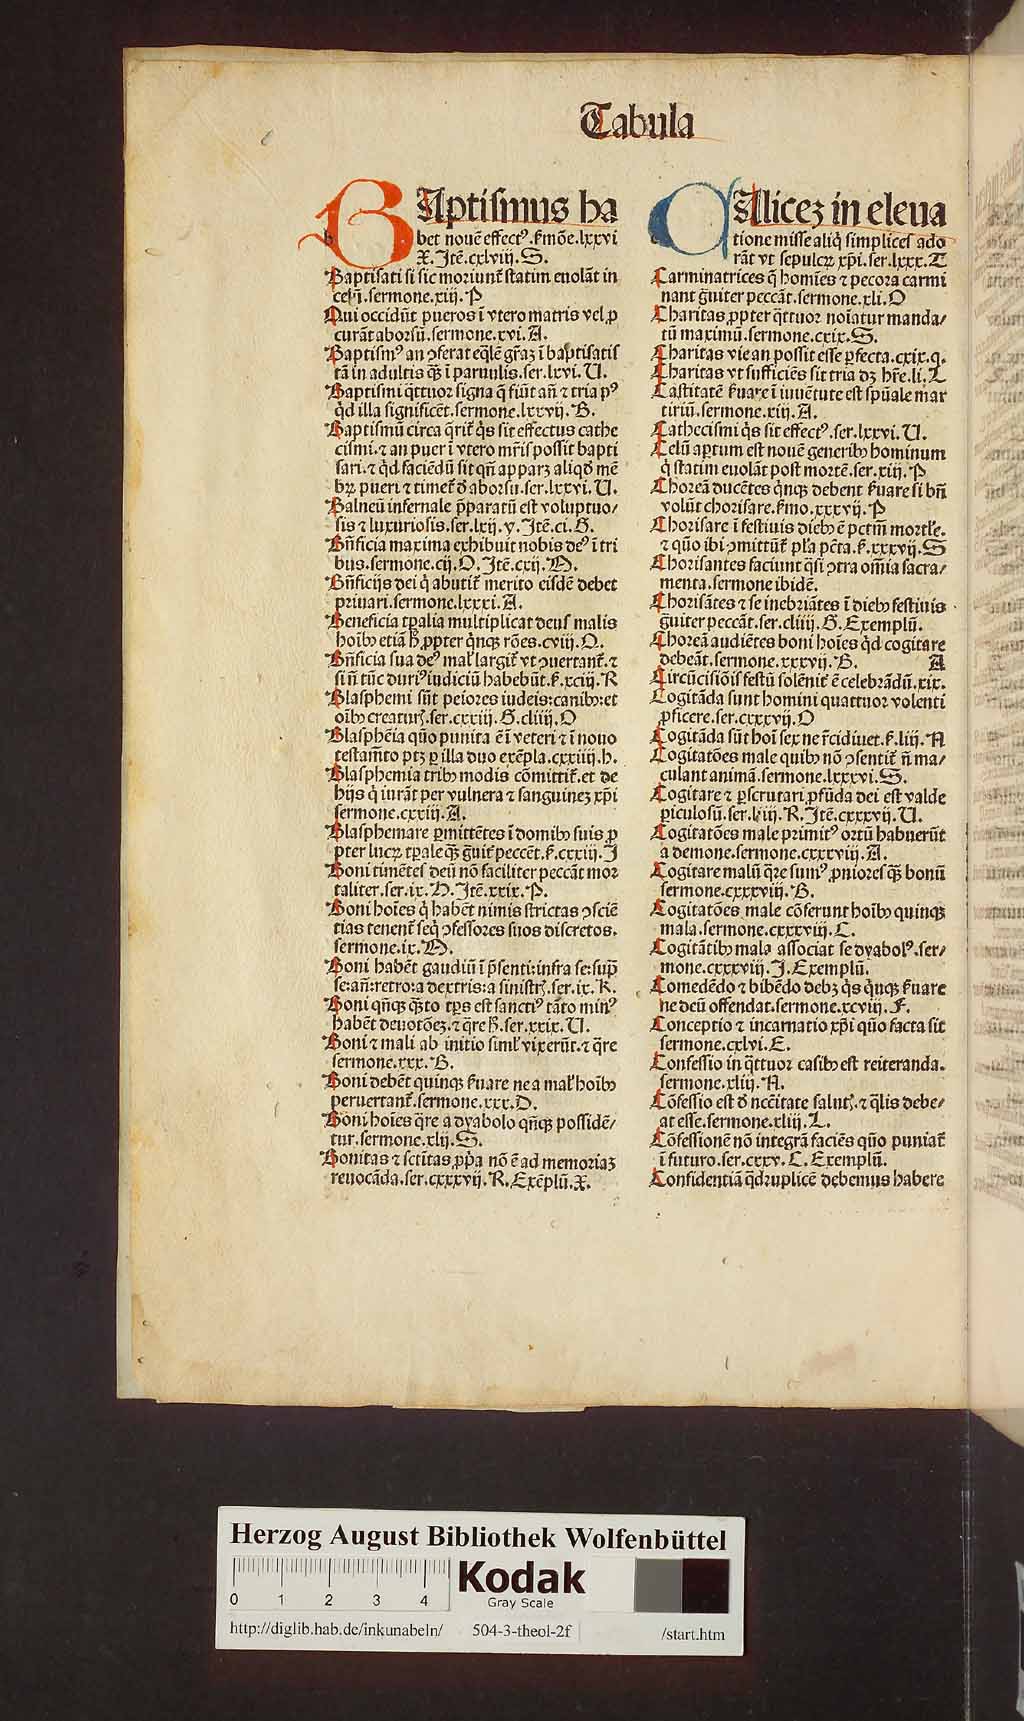 Tabula
BAptismus ha
bet nouē effectꝰ.ẜmōe.lxxvi
X.Itē.cxlviij.S.
Baptisati si sic moriunt̄ statim euolāt in
celū.sermone.xiij.P
Qui occidūt pueros ī vtero matris vel ꝓ
curāt aborsū.sermone.xvi.A.
Baptismꝰ an ꝯferat eq̄lē gr̄aꝫ ī baptisatis
tā in adultis qꝫ ī paruulis.ser.lxvi.U.
Baptismi q̄ttuor signa q̄ fiūt an̄ ⁊ tria pꝰ
q̇d illa significēt.sermone.lxxvij.B.
Baptismū circa q̄rit̄ q̇s sit effectus cathe
cismi.⁊ an puer ī vtero mr̄is possit bapti
sari.⁊ q̇d faciēdū sit qn̄ apparꝫ aliqd̄ mē
bꝝ pueri ⁊ timet̄ d̄ aborsu.ser.lxxvi.U.
Balneū infernale p̄paratū est voluptuo/
sis ⁊ luxuriosis.ser.lxij.y.Itē.ci.G.
Bn̄ficia maxima exhibuit nobis deꝰ ī tri
bus.sermone.cij.O.Itē.cxij.M.
Bn̄ficijs dei q̇ abutit̄ merito eisdē debet
priuari.sermone.lxxxi.A.
Beneficia tꝑalia multiplicat deus malis
hoībꝫ etiā h̄ ꝓpter q̇nqꝫ rōes.cviij.O.
Bn̄ficia sua deꝰ mal̕ largit̄ vt ꝯuertant̄.⁊
si n̄ tūc duriꝰ iudiciū habebūt.ẜ.xciij.R
Blasphemi sūt peiores iudeis:canibꝫ:et
oībꝫ creaturꝭ.ser.cxxiij.G.cliiij.O
Blasphēia quō punita ē ī veteri ⁊ ī nouo
testam̄to ptꝫ ꝑ illa duo exēpla.cxxiiij.h.
Blasphemia tribꝫ modis cōmittit̄.et de
hijs q̇ iurāt per vulnera ⁊ sanguineꝫ xp̄i
sermone.cxxiij.A.
Blasphemare ꝑmittētes ī domibꝫ suis ꝓ
pter lucꝝ tꝑale qꝫ ḡuit̄ peccēt.ẜ.cxxiij.I
Boni timētes deū nō faciliter peccāt mor
taliter.ser.ix.H.Itē.xxix.P.
Boni hoīes q̇ habēt nimis strictas ꝯsciē
tias tenent̄ seq̇ ꝯfessores suos discretos.
sermone.ix.M.
Boni habēt gaudiū ī p̄senti:infra se:sup̄
se:an̄:retro:a dextris:a sinistrꝭ.ser.ix.K.
Boni qn̄qꝫ q̄to tp̄s est sanctiꝰ tāto minꝰ
habēt deuotōeꝫ.⁊ q̄re h̄.ser.xxix.U.
Boni ⁊ mali ab initio siml̕ vixerūt.⁊ q̄re
sermone.xxx.B.
Boni debēt quinqꝫ ẜuare ne a mal̕ hoībꝫ
peruertant̄.sermone.xxx.D.
Boni hoīes q̄re a dyabolo qn̄qꝫ possidē/
tur.sermone.xlij.S.
Bonitas ⁊ sctītas ꝓp̄a nō ē ad memoriaꝫ
reuocāda.ser.cxxxvij.R.Exēplū.X.
CAliceꝫ in eleua
tione misse aliq̇ simplices ado
rāt vt sepulcꝝ xp̄i.ser.lxxx.T
Carminatrices q̄ homīes ⁊ pecora carmi
nant ḡuiter peccāt.sermone.xli.O
Charitas ꝓpter q̄ttuor noīatur manda/
tū maximū.sermone.cxix.S.
Charitas vie an possit esse ꝑfecta.cxix.q.
Charitas vt sufficiēs sit tria dꝫ hr̄e.li.L
Castitatē ẜuare ī iuuētute est spūale mar
tiriū.sermone.xiij.A.
Cathecismi q̇s sit effectꝰ.ser.lxxvi.U.
Celū aꝑtum est nouē generibꝫ hominum
q̇ statim euolāt post mortē.ser.xiij.P
Choreā ducētes q̇nqꝫ debent ẜuare si bn̄
volūt chorisare.ẜmo.xxxvij.P
Chorisare ī festiuis diebꝫ ē pctm̄ mortl̕e.
⁊ quō ibi ꝯmittūt̄ pl̕a pctā.ẜ.xxxvij.S
Chorisantes faciunt q̇si ꝯtra om̄ia sacra/
menta.sermone ibidē.
Chorisātes ⁊ se inebriātes ī diebꝫ festiuis
ḡuiter peccāt.ser.cliiij.G.Exemplū.
Choreā audiētes boni hoīes q̇d cogitare
debeāt.sermone.xxxvij.B. A
Circūcisiōis festū solēnit̄ ē celebrādū.xix.
Cogitāda sunt homini quattuor volenti
ꝓficere.ser.cxxxvij.O
Cogitāda sūt hoī sex ne r̄cidiuet.ẜ.liij.N
Cogitatōes male quibꝫ nō ꝯsentit̄ n̄ ma/
culant animā.sermone.lxxxvi.S.
Cogitare ⁊ ꝑscrutari ꝓfūda dei est valde
ꝑiculosū.ser.liij.R.Itē.cxxxvij.U.
Cogitatōes male primitꝰ ortū habuerūt
a demone.sermone.cxxxviij.A.
Cogitare malū q̄re sumꝰ ꝓniores qꝫ bonū
sermone.cxxxviij.B.
Cogitatōes male cōferunt hoībꝫ quinqꝫ
mala.sermone.cxxxviij.C.
Cogitātibꝫ mala associat se dyabolꝰ.ser/
mone.cxxxviij.I.Exemplū.
Comedēdo ⁊ bibēdo debꝫ q̇s q̇nqꝫ ẜuare
ne deū offendat.sermone.xcviij.F.
Conceptio ⁊ incarnatio xp̄i quō facta sit
sermone.cxlvi.E.
Confessio in q̄ttuor casibꝫ est reiteranda.
sermone.xliij.N.
Cōfessio est d̄ nccītate salutꝭ.⁊ q̄lis debe/
at esse.sermone.xliij.L.
Cōfessionē nō integrā faciēs quō puniat̄
ī futuro.ser.cxxv.C.Exemplū.
Confidentiā q̄druplicē debemus habere
Herzog August Bibliothek Wolfenbüttel
0 1 2 3 4
Kodak
Gray Scale
http://diglib.hab.de/inkunabeln/ 504-3-theol-2f /start.htm